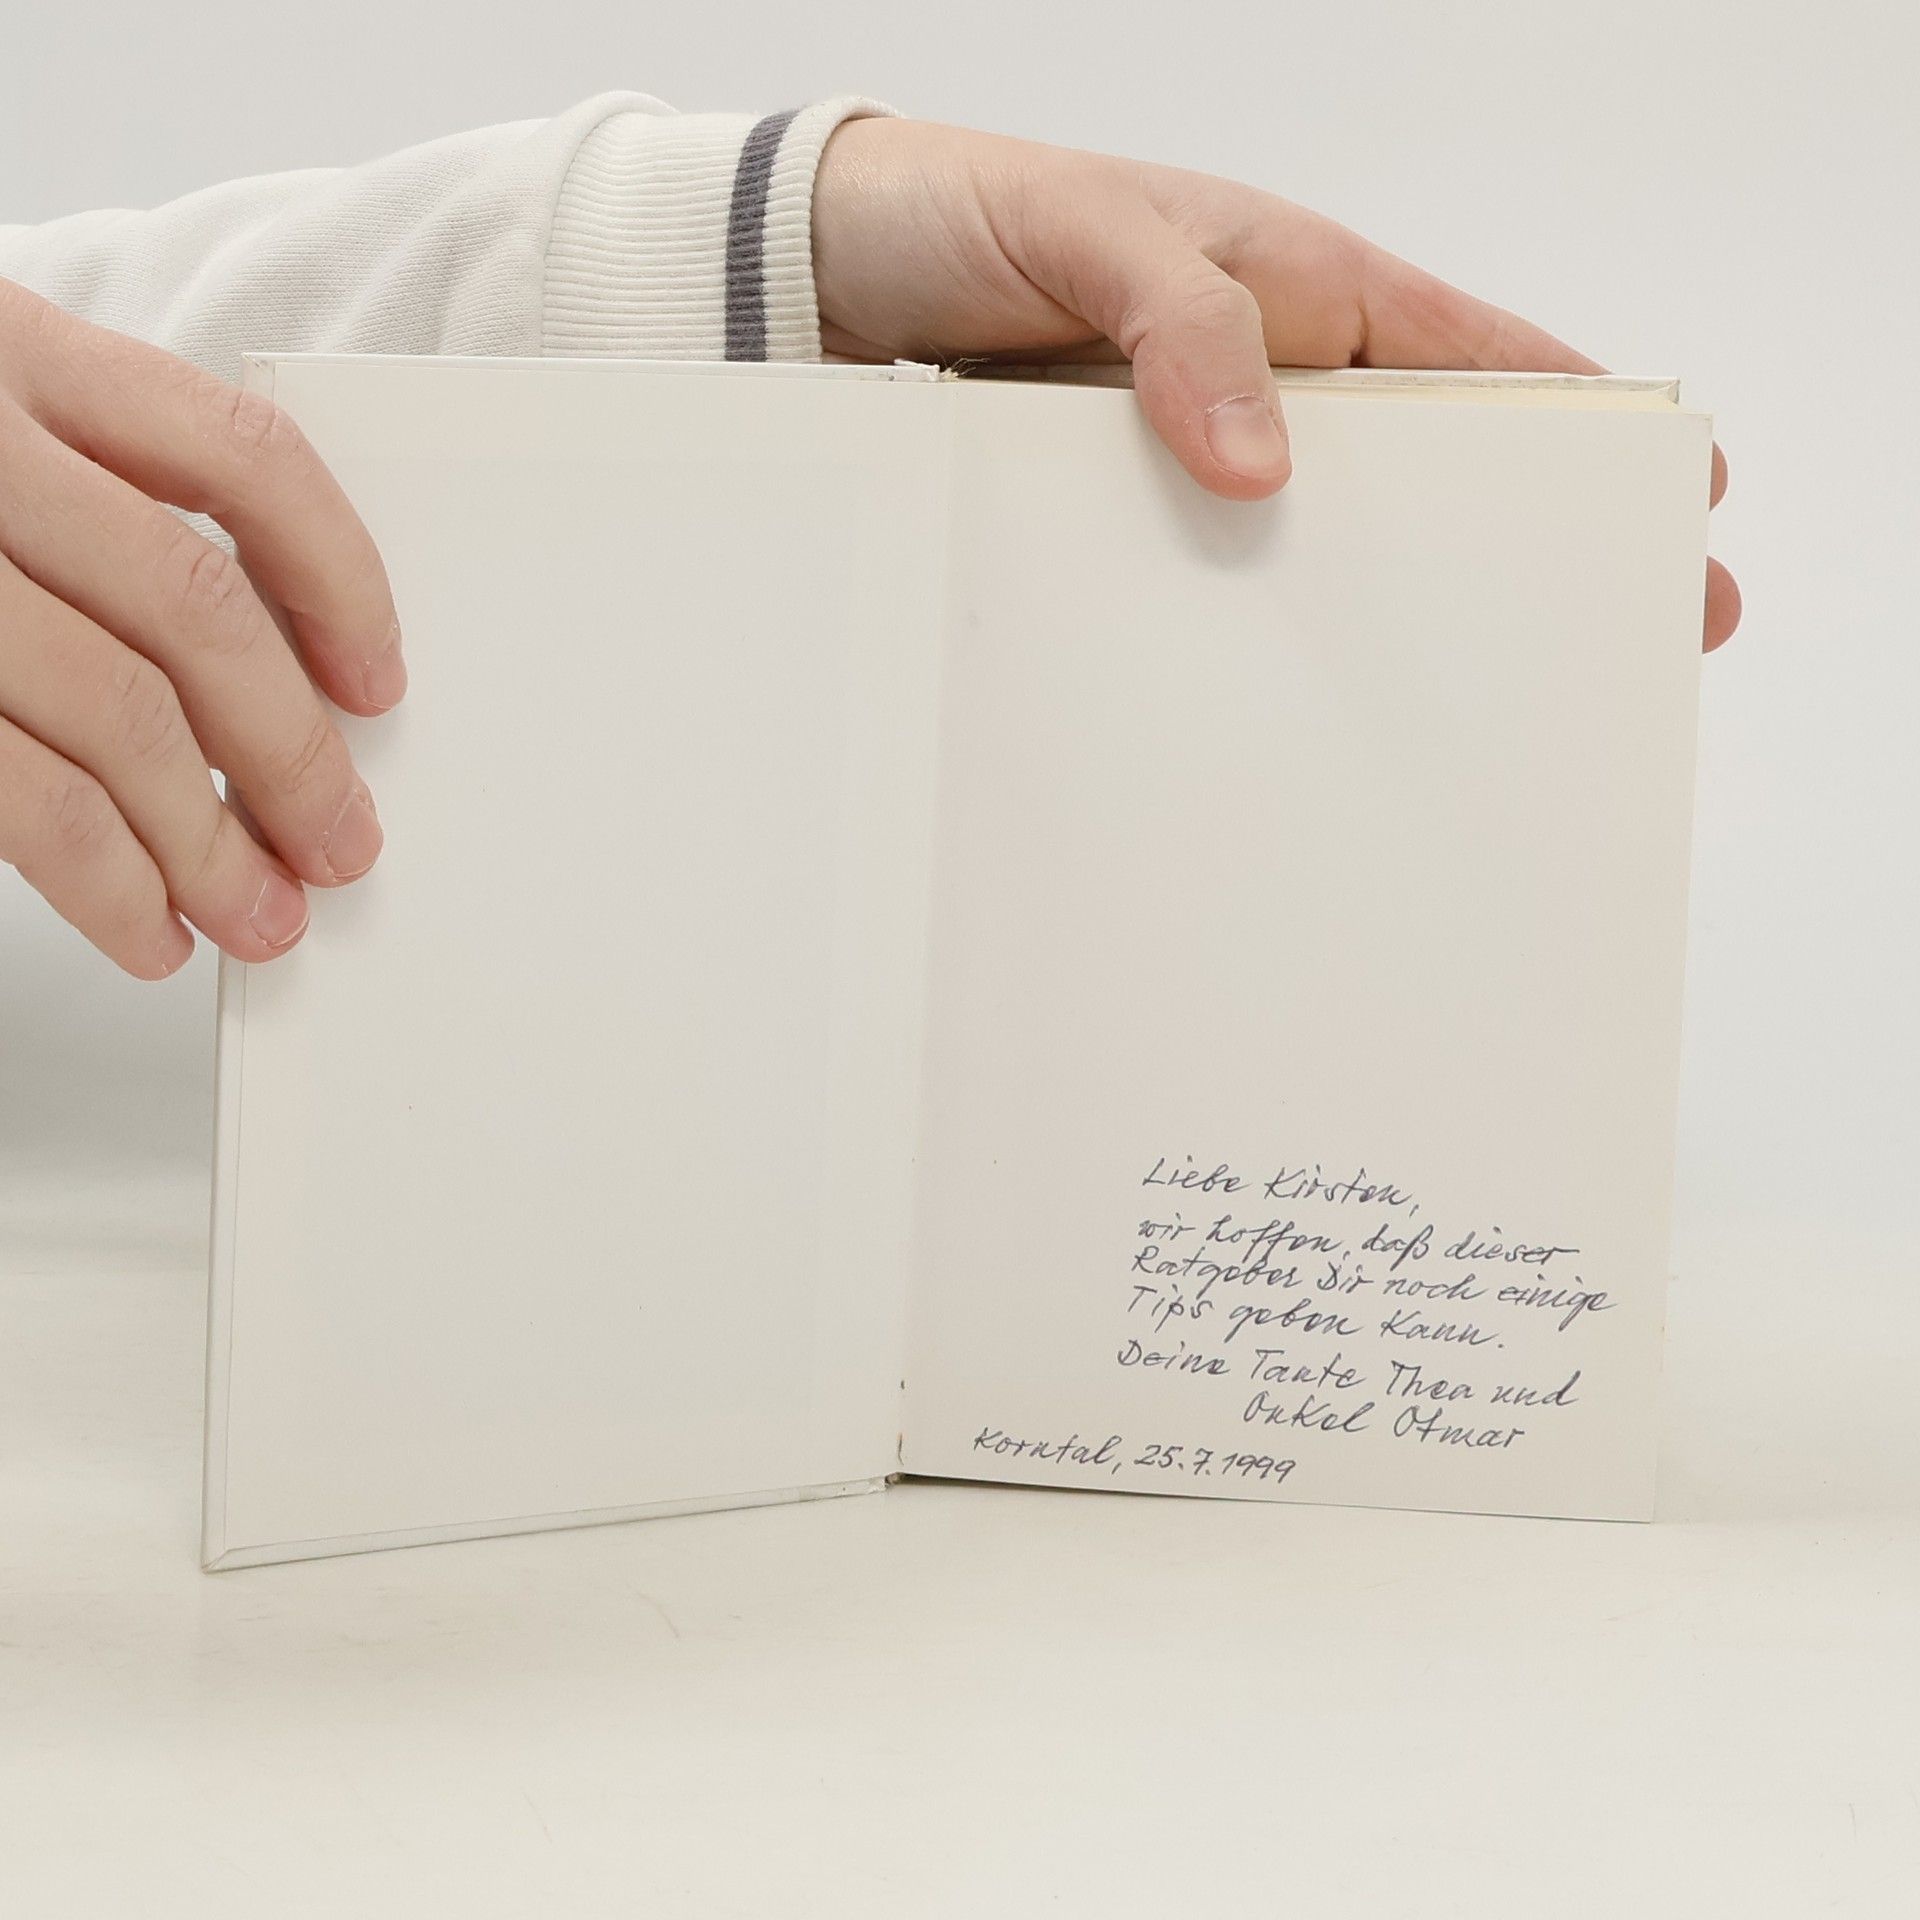 Liebe Kirsten,
wir hoffen, daß dieser
Ratgeber Dir noch einige
Tips geben kann.
Deine Tante Thea und
Onkel Otmar
Korntal, 25.7.1999